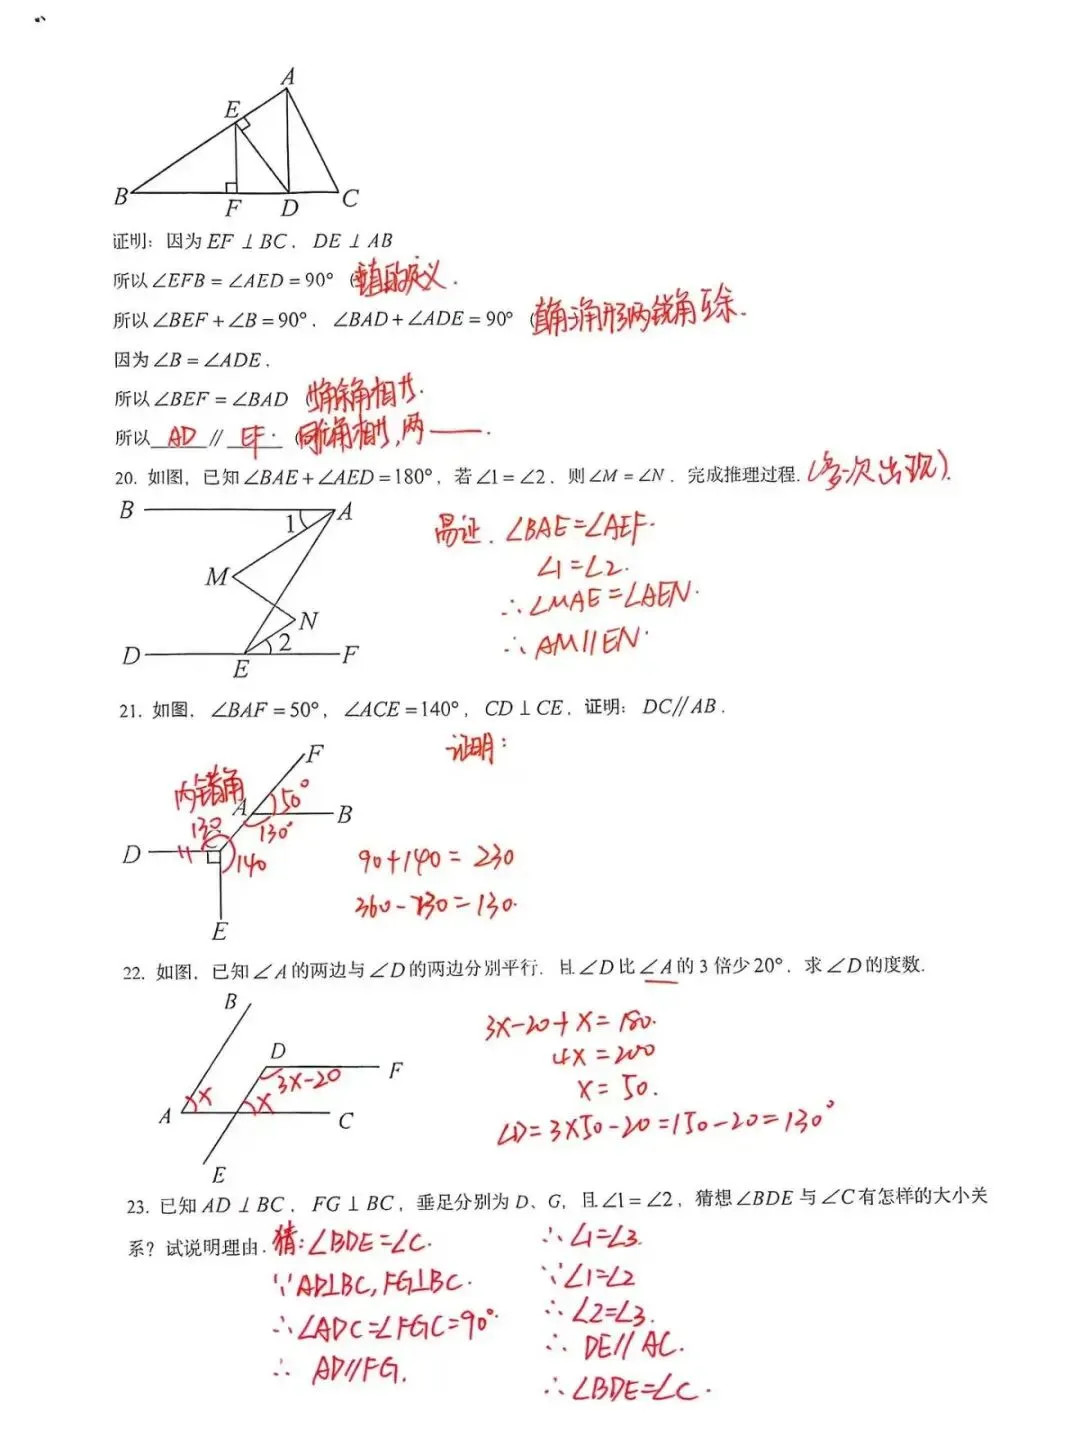 A
E
B
F
D
C
证明：因为EF⊥BC，DE⊥AB
所以∠EFB=∠AED=90°（垂直的定义.
所以∠BEF+∠B=90°，∠BAD+∠ADE=90°（直角三角形两锐角互余.
因为∠B=∠ADE，
所以∠BEF=∠BAD（等角余角相等.
所以 AD // EF.（同位角相等,两——.
20. 如图，已知∠BAE+∠AED=180°，若∠1=∠2，则∠M=∠N．完成推理过程.（多次出现).
B
1
A
M
N
D
E
2
F
易证. ∠BAE=∠AEF.
∠1=∠2.
∴∠MAE=∠AEN.
∴AM//EN.
21. 如图，∠BAF=50°，∠ACE=140°，CD⊥CE，证明：DC//AB．
证明：
F
内错角
A
50°
B
130
130°
D
C
140
E
90+140=230
360-230=130.
22. 如图，已知∠A的两边与∠D的两边分别平行．且∠D比∠A的3倍少20°．求∠D的度数．
B
D
3x-20
F
A
x
x
C
E
3x-20+x=180.
4x=200
x=50.
∠D=3×50-20=150-20=130°
23. 已知AD⊥BC，FG⊥BC，垂足分别为D、G，且∠1=∠2，猜想∠BDE与∠C有怎样的大小关
系？试说明理由．猜:∠BDE=∠C.
∵AD⊥BC,FG⊥BC.
∴∠ADC=∠FGC=90°.
∴ AD//FG.
∴∠1=∠3.
∵∠1=∠2
∴∠2=∠3.
∴ DE//AC.
∴∠BDE=∠C.